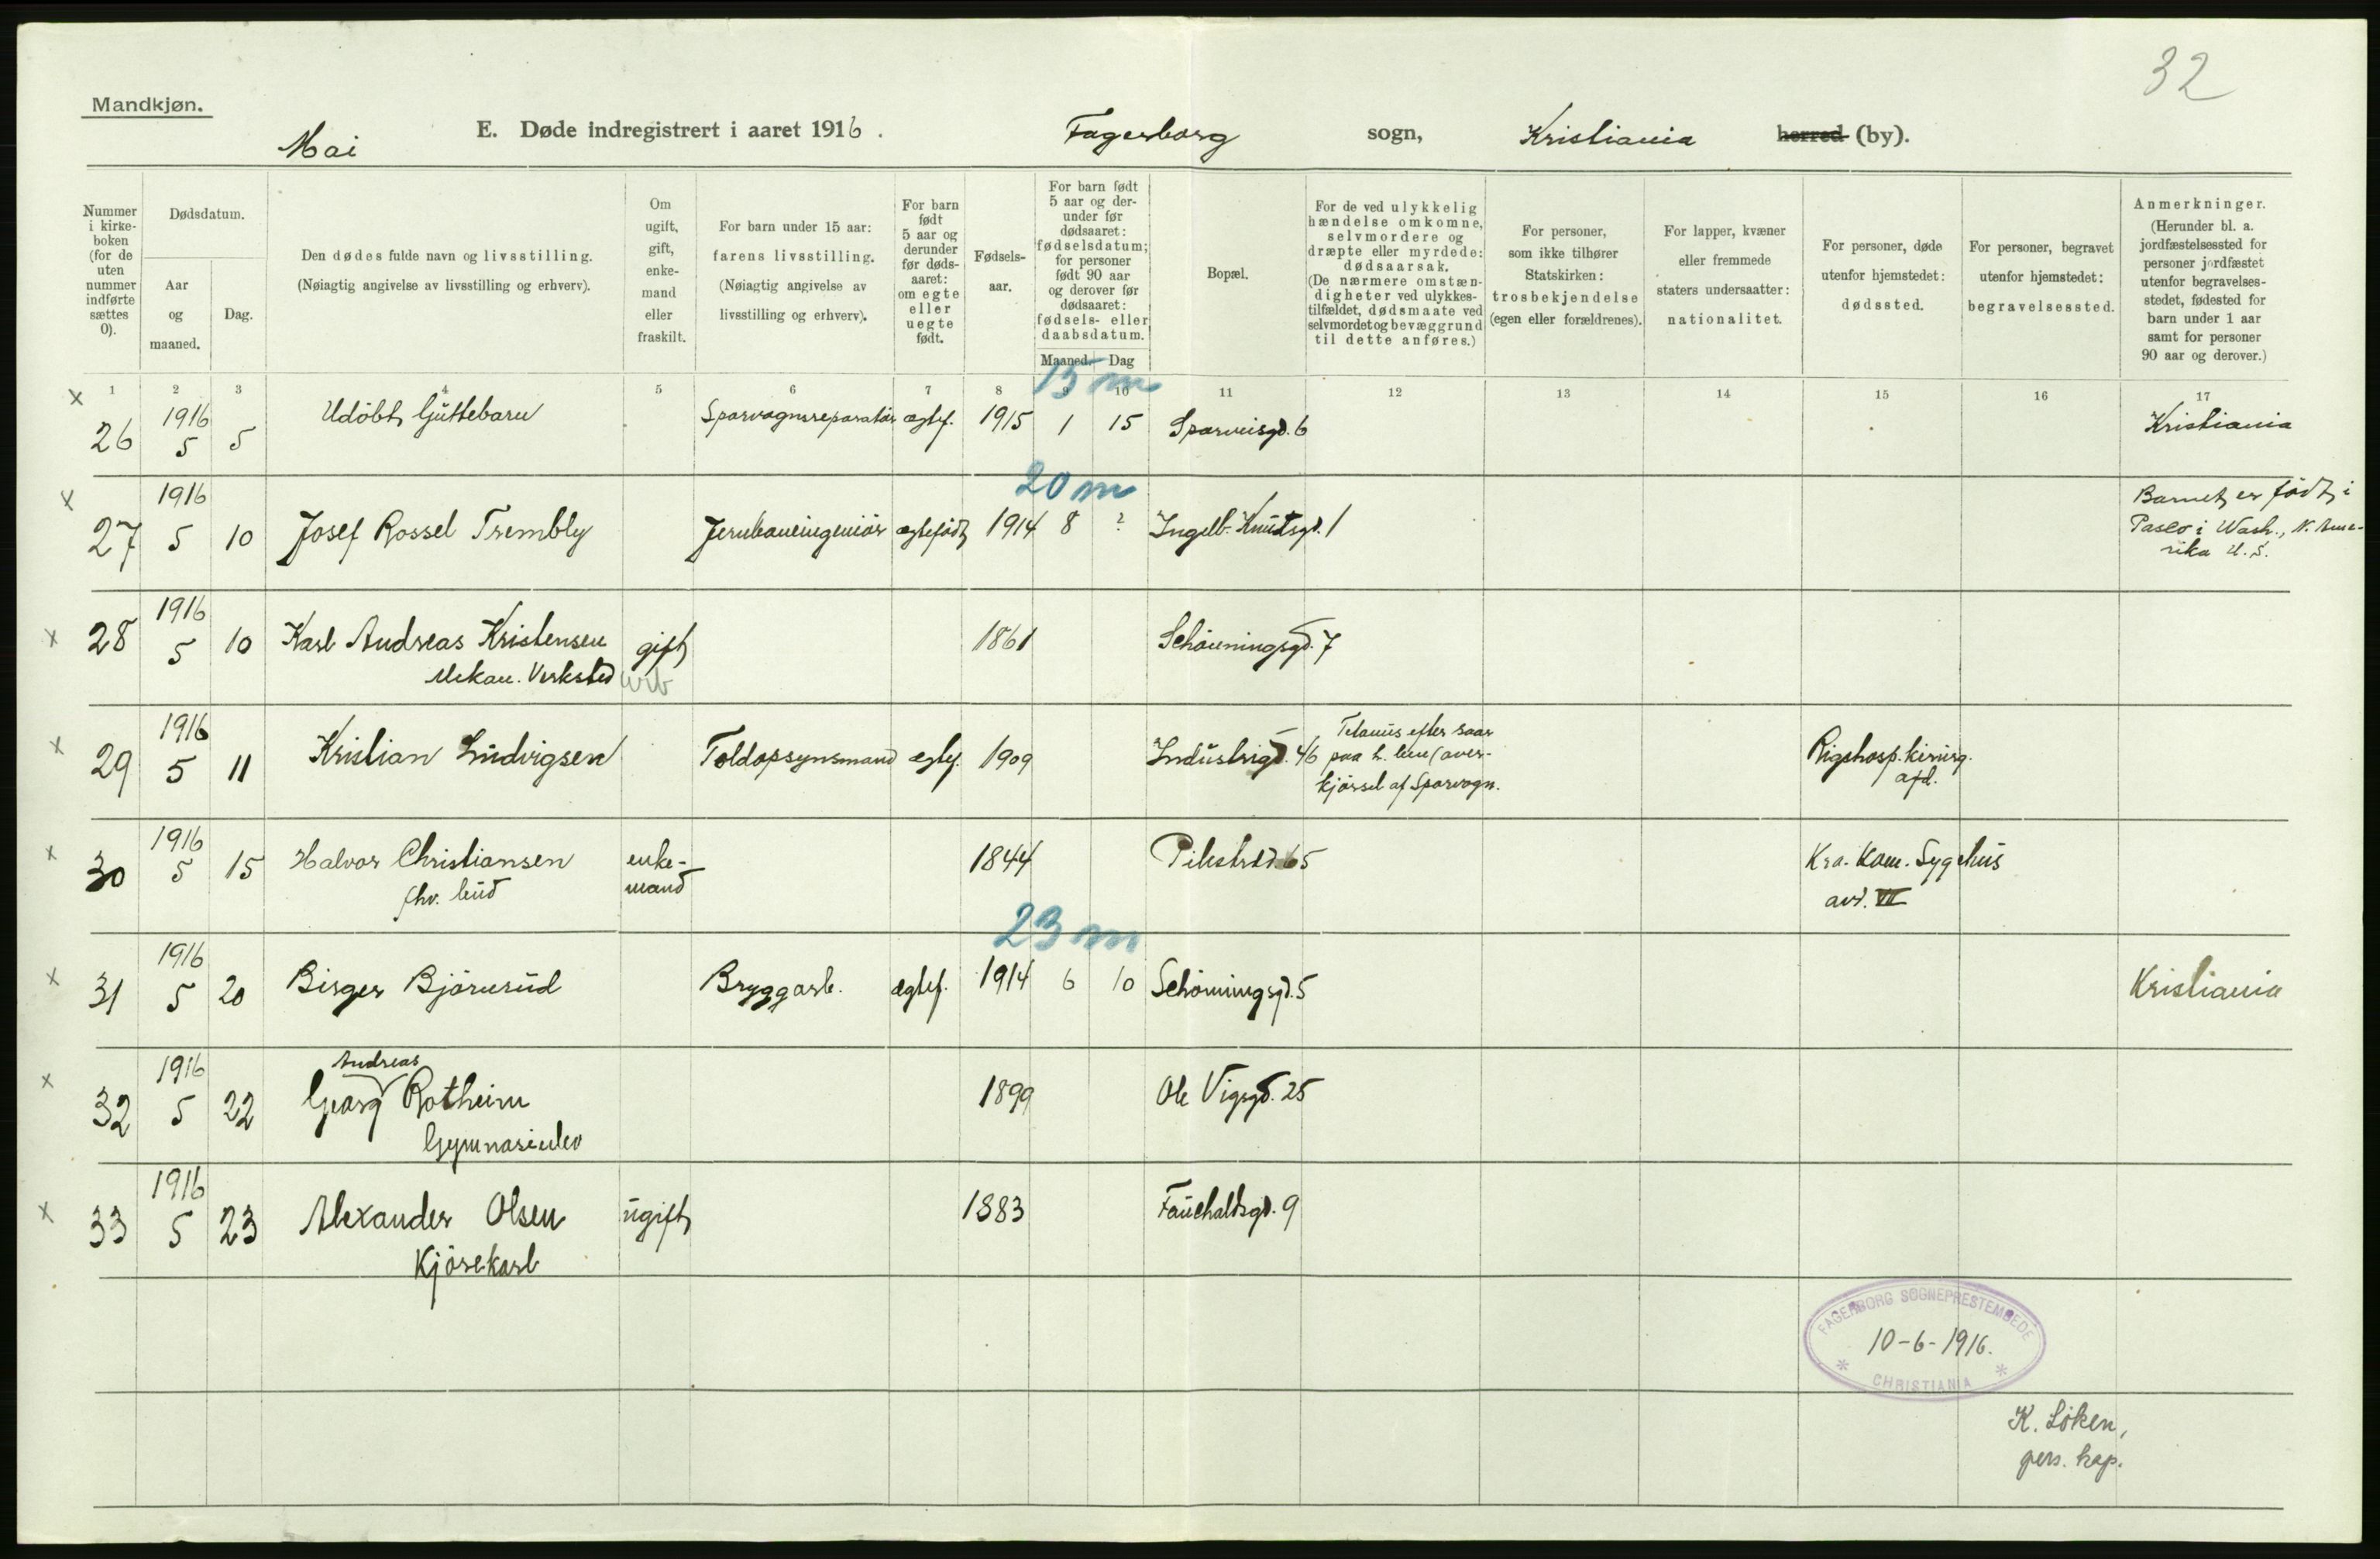 32
Mandkjøn.
E. Døde indregistrert i aaret 1916.
Mai
Fagerborg sogn, Kristiania herred (by).
Nummer i kirke-boken (for de uten nummer indførte sættes 0).
Dødsdatum.
Aar og maaned.
Dag.
Den dødes fulde navn og livsstilling.
(Nøiagtig angivelse av livsstilling og erhverv).
Om ugift, gift, enke-mand eller fraskilt.
For barn under 15 aar: farens livsstilling.
(Nøiagtig angivelse av livsstilling og erhverv).
For barn født 5 aar og derunder før døds-aaret: om egte eller uegte født.
Fødsels-aar.
For barn født 5 aar og der-under før dødsaaret: fødselsdatum; for personer født 90 aar og derover før dødsaaret: fødsels- eller daabsdatum.
Maaned. Dag
Bopæl.
For de ved ulykkelig hændelse omkomne, selvmordere og dræpte eller myrdede: dødsaarsak.
(De nærmere omstæn-digheter ved ulykkes-tilfældet, dødsmaate ved selvmordet og bevæggrund til dette anføres.)
For personer, som ikke tilhører Statskirken: trosbekjendelse (egen eller forældrenes).
For lapper, kvæner eller fremmede staters undersaatter: nationalitet.
For personer, døde utenfor hjemstedet: dødssted.
For personer, begravet utenfor hjemstedet: begravelsessted.
Anmerkninger.
(Herunder bl. a. jordfæstelsessted for personer jordfæstet utenfor begravelses-stedet, fødested for barn under 1 aar samt for personer 90 aar og derover.)
1 2 3 4 5 6 7 8 9 10 11 12 13 14 15 16 17
15 m
x 26 1916 5 5 Udöbt Guttebarn Sporvognsreparatör egtef. 1915 1 15 Sporveisgd. 6 Kristiania
20 m
x 27 1916 5 10 Josef Rossel Trembly Jernbaneingeniör egtefödt 1914 8 ? Ingelb. Knutsgd. 1 Barnet er födt i
Pasco i Wash., N. Ame-
rika U.S.
x 28 1916 5 10 Karl Andreas Kristensen gift 1861 Schöningsgd. 7
Mekan. Verksted
x 29 1916 5 11 Kristian Ludvigsen Toldopsynsmand egtef. 1909 Industrigd. 46 Tetanus efter saar
paa h. ben (over-
kjörsel af Sporvogn.
Rigshosp. kirurg.
afd.
x 30 1916 5 15 Halvor Christiansen enke-
mand 1844 Pilestræd. 65 Kra. Kom. Sygehus
fhv. bud avd. VII
23 m
x 31 1916 5 20 Birger Björnrud Bryggarb. egtef. 1914 6 10 Schöningsgd. 5 Kristiania
Andreas
x 32 1916 5 22 Georg Rotheim 1899 Ole Vigsgd. 25
Gymnasielev
x 33 1916 5 23 Alexander Olsen ugift 1883 Fauchaldsgd. 9
Kjörekarl
FAGERBORG SOGNEPRESTEMBEDE
10-6-1916.
* CHRISTIANIA *
K. Löken,
pers. kap.